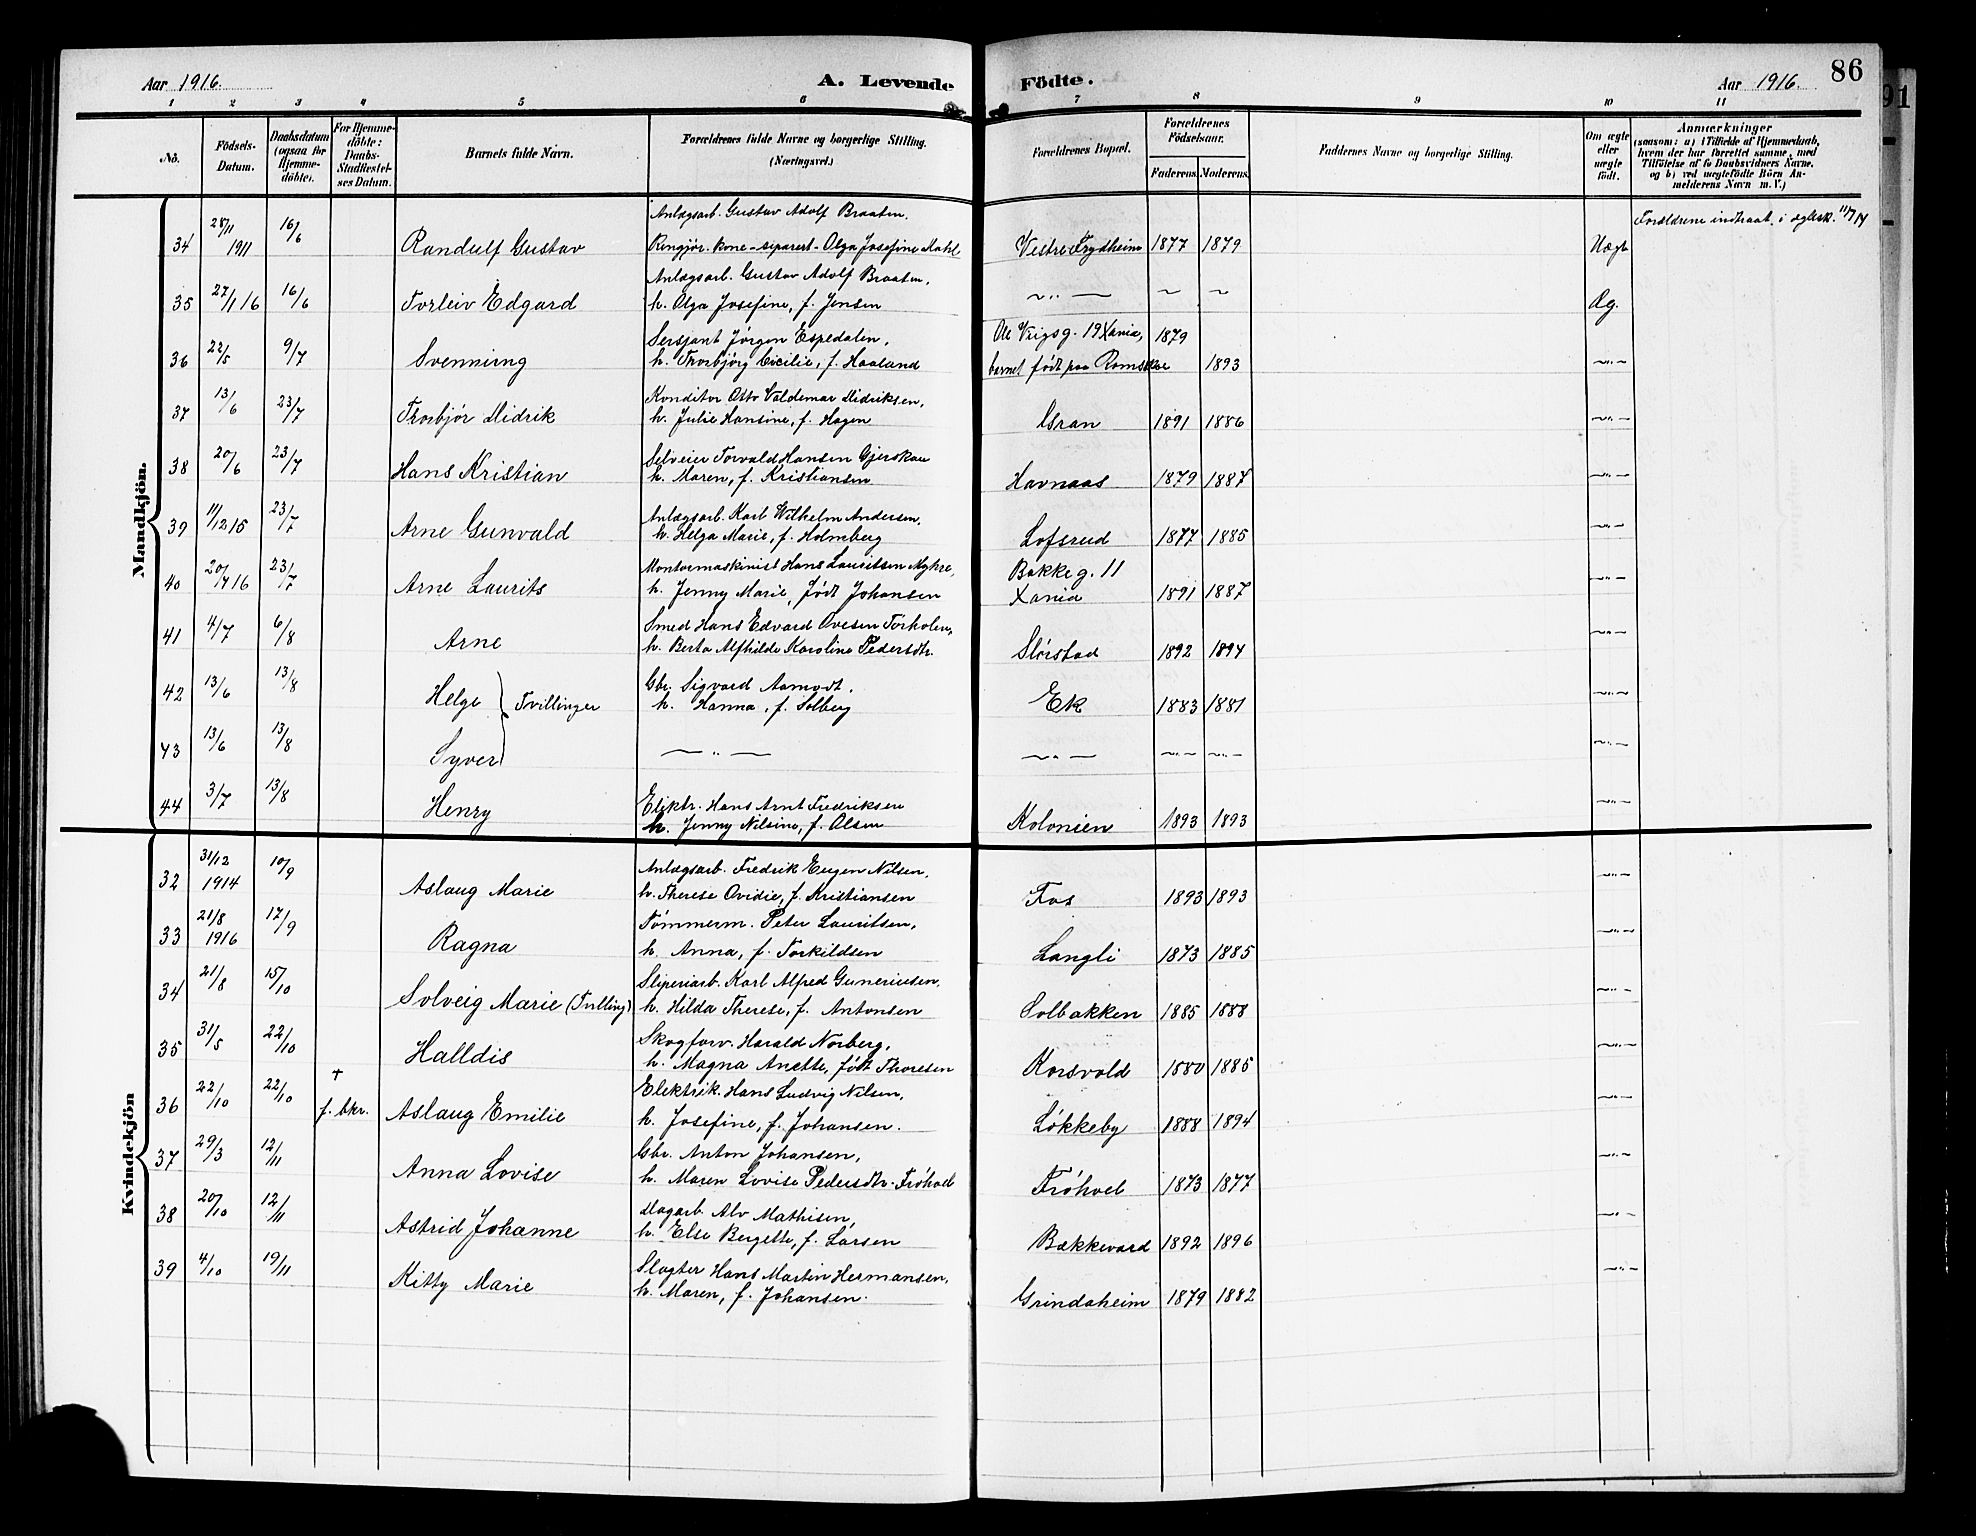 86
Aar 1916. A. Levende Födte. Aar 1916.
1 2 3 4 5 6 7 8 9 10 11
No.
Födsels-Datum.
Daabsdatum (ogsaa for Hjemme-döbte).
For Hjemme-döbte: Daabs-Stadfæstel-ses Datum.
Barnets fulde Navn.
Forældrenes fulde Navne og borgerlige Stilling.
(Næringsvei.)
Forældrenes Bopæl.
Forældrenes Födselsaar.
Faderens. Moderens.
Faddernes Navne og borgerlige Stilling.
Om ægte eller uægte födt.
Anmærkninger
(saasom: a) i Tilfælde af Hjemmedaab,
hvem der har forrettet samme, med
Tilföielse af to Daabsvidners Navne,
og b) ved uægtefödte Börn An-
melderens Navn m. V.)
Mandkjön.
34 28/11 1911 16/6 Randulf Gustav Anlægsarb. Gustav Adolf Braaten.
Rengjør. kone - separert - Olga Josefine Dahl Vestre Frydheim 1877 1879 Uægt Forældrene indtraat. i ægtesk. 11/7 14
35 27/1 16 16/6 Torleiv Edgard Anlægsarb. Gustav Adolf Braaten,
h. Olga Josefine, f. Jensen ~ " — ~ ~ Æg.
36 22/5 9/7 Svennung Sersjant Jørgen Espedalen,
h. Thorbjörg Cicilie, f. Haaland Ole Vigsg. 19 Xania, 1879
barnet født paa Romskog 1893 ~"~
37 13/6 23/7 Thorbjør Didrik Konditor Otto Valdemar Didriksen,
h. Julie Hansine, f. Hagen Isran 1891 1886 ~"~
38 20/6 23/7 Hans Kristian Selveier Torvald Hansen Gjerskau
h. Maren, f. Kristiansen Havnaas 1879 1887 ~"~
39 11/12 15 23/7 Arne Gunvald Anlægsarb. Karl Wilhelm Andersen,
h. Helga Marie, f. Holmberg Lofsrud 1877 1885 ~"~
40 20/4 16 23/7 Arne Laurits Montørmaskinist Hans Lauritsen Myhre,
h. Jenny Marie, født Johansen Bakkeg. 11
Xania 1891 1887 ~"~
41 4/7 6/8 Arne Smed Hans Edvard Ovesen Torholen,
h. Berta Alfhilde Karoline Pedersdtr. Slörstad 1892 1894 ~"~
42 13/6 13/8 Helge } Tvillinger Gbr. Sigvard Aamodt,
h. Hanna, f. Solberg Ek 1883 1881 ~"~
43 13/6 13/8 Syver — " — ~"~ ~"~ ~"~ ~"~
44 3/7 13/8 Henry Elektr. Hans Arnt Fredriksen
h. Jenny Nilsine, f. Olsen Kolonien 1893 1893 ~"~
Kvindekjön
32 31/12 1914 10/9 Aslaug Marie Anlægsarb. Fredrik Eugen Nilsen,
h. Therese Ovidie, f. Kristiansen Fos 1893 1893 ~"~
33 21/8 1916 17/9 Ragna Tömmerm. Peter Lauritsen,
h. Anna, f. Torkildsen Langli 1873 1885 ~"~
34 21/8 15/10 Solveig Marie (Tvilling) Sliperiarb. Karl Alfred Guneriusen,
h. Hilda Therese, f. Antonsen Solbakken 1885 1888 ~"~
35 31/5 22/10 Halldis Skogforv. Harald Norberg,
h. Magna Anette, født Thoresen Korsvold 1880 1885 ~"~
36 22/10 22/10 + f. bkr. Aslaug Emilie Elektrik. Hans Ludvig Nilsen,
h. Josefine, f. Johansen. Løkkeby 1888 1894 ~"~
37 29/3 12/11 Anna Lovise Gbr. Anton Johansen,
h. Maren Lovise Pedersdtr. Fröhoel Fröhoel 1873 1877 ~"~
38 20/10 12/11 Astrid Johanne Dagarb. Alv Mathisen,
h. Else Bergette, f. Larsen Bækkevard 1892 1896 ~"~
39 4/10 19/11 Kitty Marie Slagter Hans Martin Hermansen,
h. Maren, f. Johansen. Grindaheim 1879 1882 ~"~
91